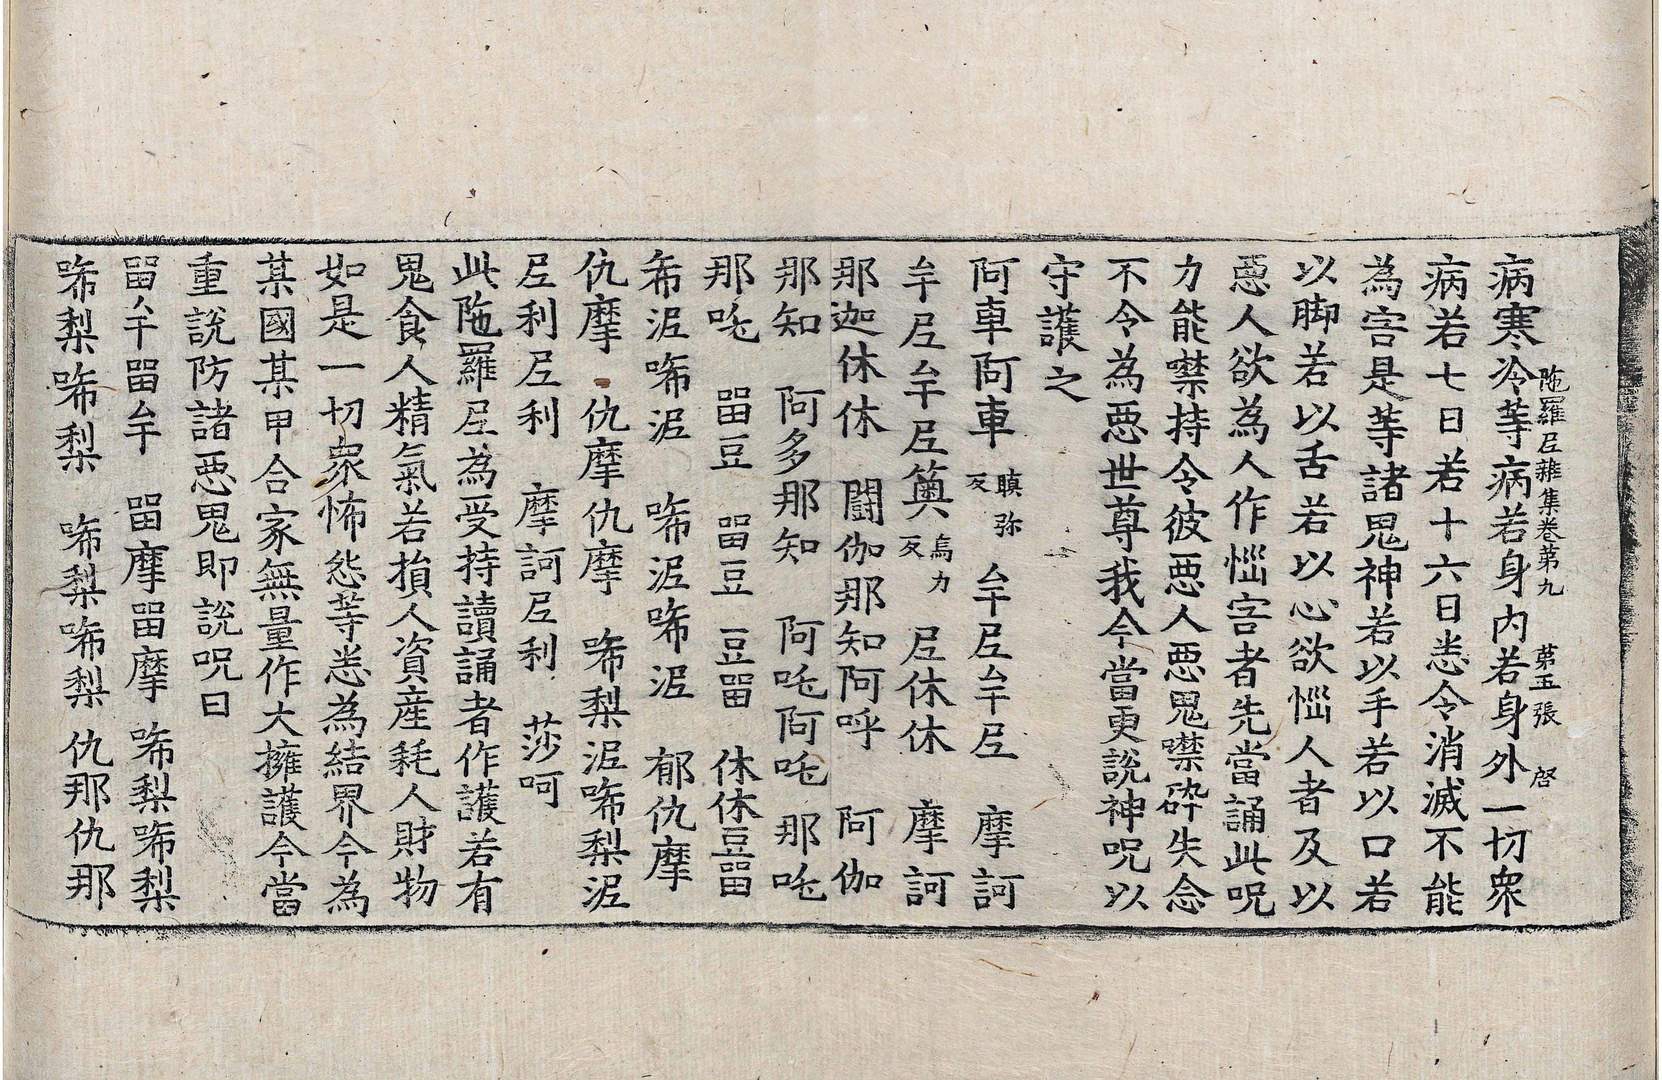 陁羅尼雜集卷第九 第五張 啓
病寒冷等病若身內若身外一切衆
病若七日若十六日悉令消滅不能
為害是等諸鬼神若以手若以口若
以脚若以舌若以心欲惱人者及以
惡人欲為人作惱害者先當誦此呪
力能噤持令彼惡人惡鬼噤碎失念
不令為惡世尊我今當更說神呪以
守護之
阿車阿車瞋弥反 牟尼牟尼 摩訶
牟尼牟尼䈛烏力反 尼休休 摩訶
那迦休休 鬪伽那知阿呼 阿伽
那知 阿多那知 阿吒阿吒 那吒
那吒 畱豆 畱豆 豆畱 休休豆畱
希泥㗭泥 㗭泥㗭泥 郁仇摩
仇摩 仇摩仇摩 㗭梨泥㗭梨泥
尼利尼利 摩訶尼利 莎呵
此陁羅尼為受持讀誦者作護若有
鬼食人精氣若損人資産耗人財物
如是一切衆怖怨等悉為結界今為
某國某甲合家無量作大擁護今當
重說防諸惡鬼即說呪曰
畱牟畱牟 畱摩畱摩 㗭梨㗭梨
㗭梨㗭梨 㗭梨㗭梨 仇那仇那